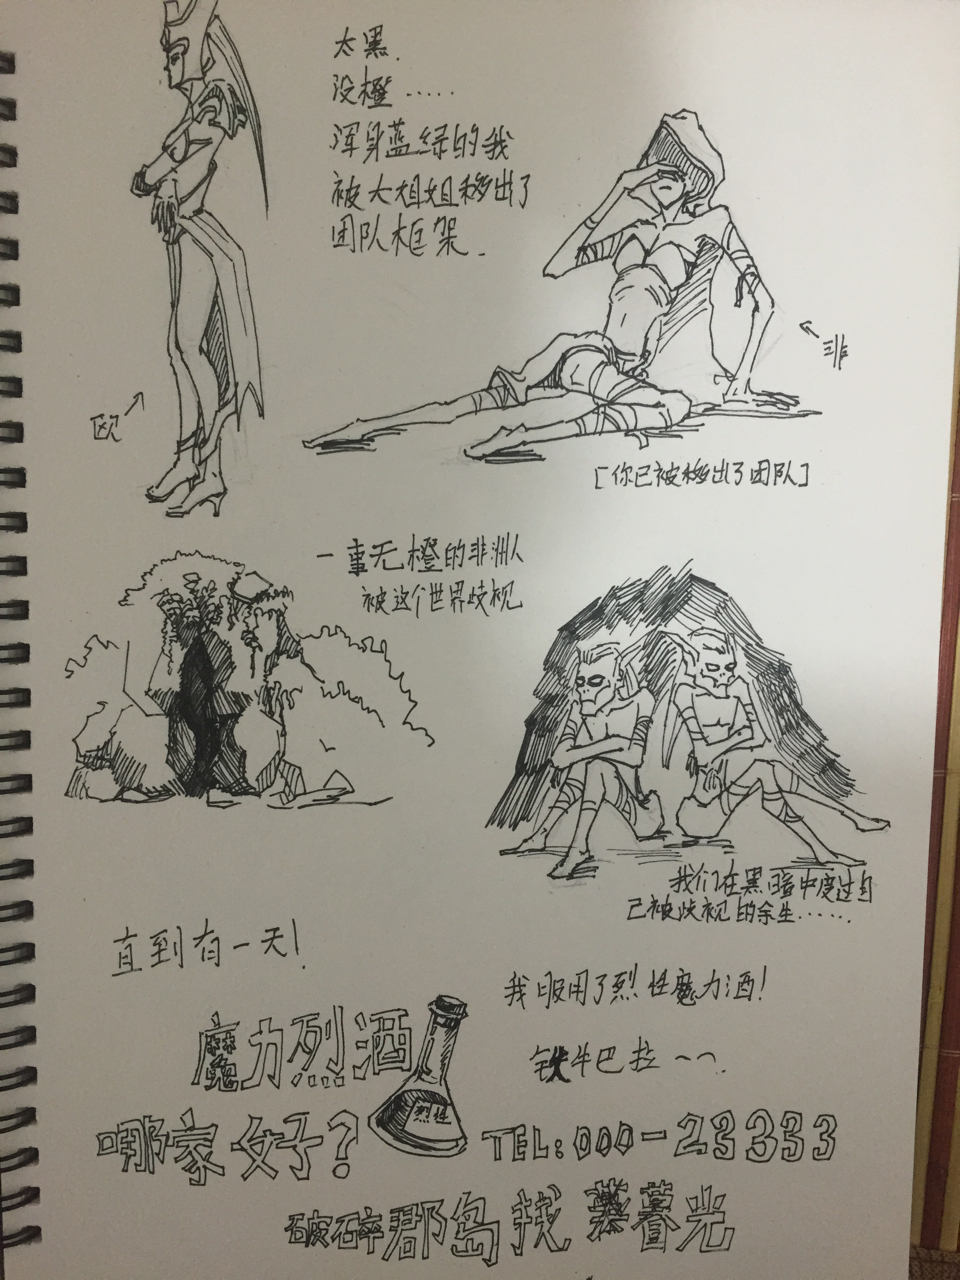 太黑.
没橙.....
浑身蓝绿的我
被大姐姐移出了
团队框架.
欧
非
[你已被移出了团队]
一直无橙的非洲人
被这个世界歧视
我们在黑暗中度过自
己被歧视的余生......
直到有一天!
我服用了烈性魔力酒!
魔力烈酒
烈性
铁牛巴拉~~.
哪家好?
TEL:000-23333
破碎群岛找暮光